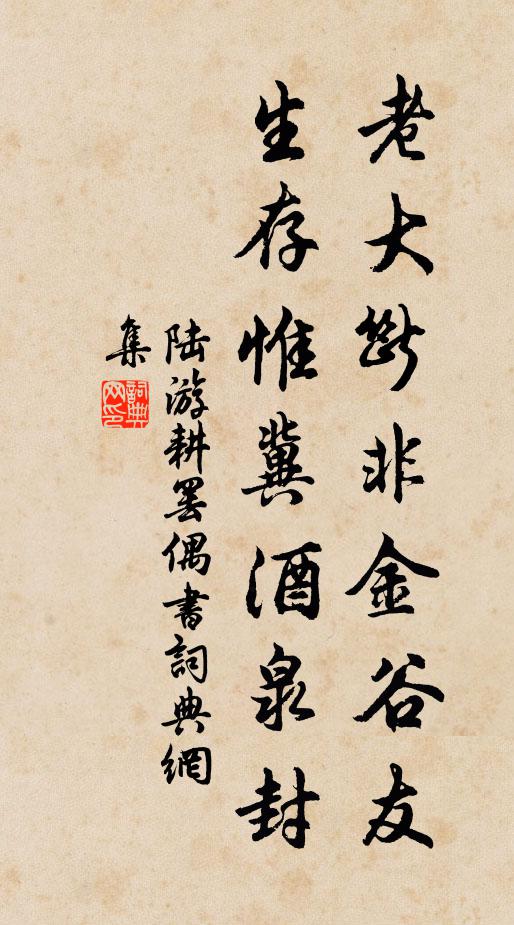 老大断非金谷友
生存惟冀酒泉封
陆游耕罢偶书词典網
集
詞典網印